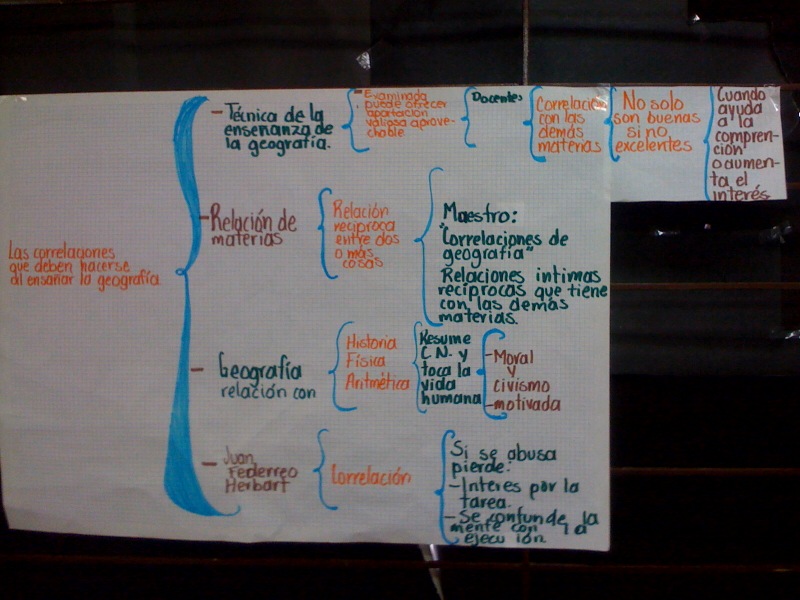 Las correlaciones
que deben hacerse
al ensañar la geografía.
- Técnica de la
enseñanza de
la geografía.
- Examinada
puede ofrecer
aportación
valiosa aprove-
chable
Docentes
Correlación
con las
demás
materias
No solo
son buenas
si no
excelentes
Cuando
ayuda
a la
compren-
ción
o aumen-
ta el
interés
- Relación de
materias
Relación
reciproca
entre dos
o más
cosas
Maestro:
"Correlaciones de
geografía"
Relaciones intimas
recíprocas que tiene
con las demás
materias.
- Geografía
relación con
Historia
Física
Aritmética
Resume
C.N. y
toca la
vida
humana
- Moral
y
civismo
- motivada
- Juan
Federreo
Herbart
Correlación
Si se abusa
pierde:
- Interes por la
tarea.
- Se confunde la
mente con la
ejecu ión